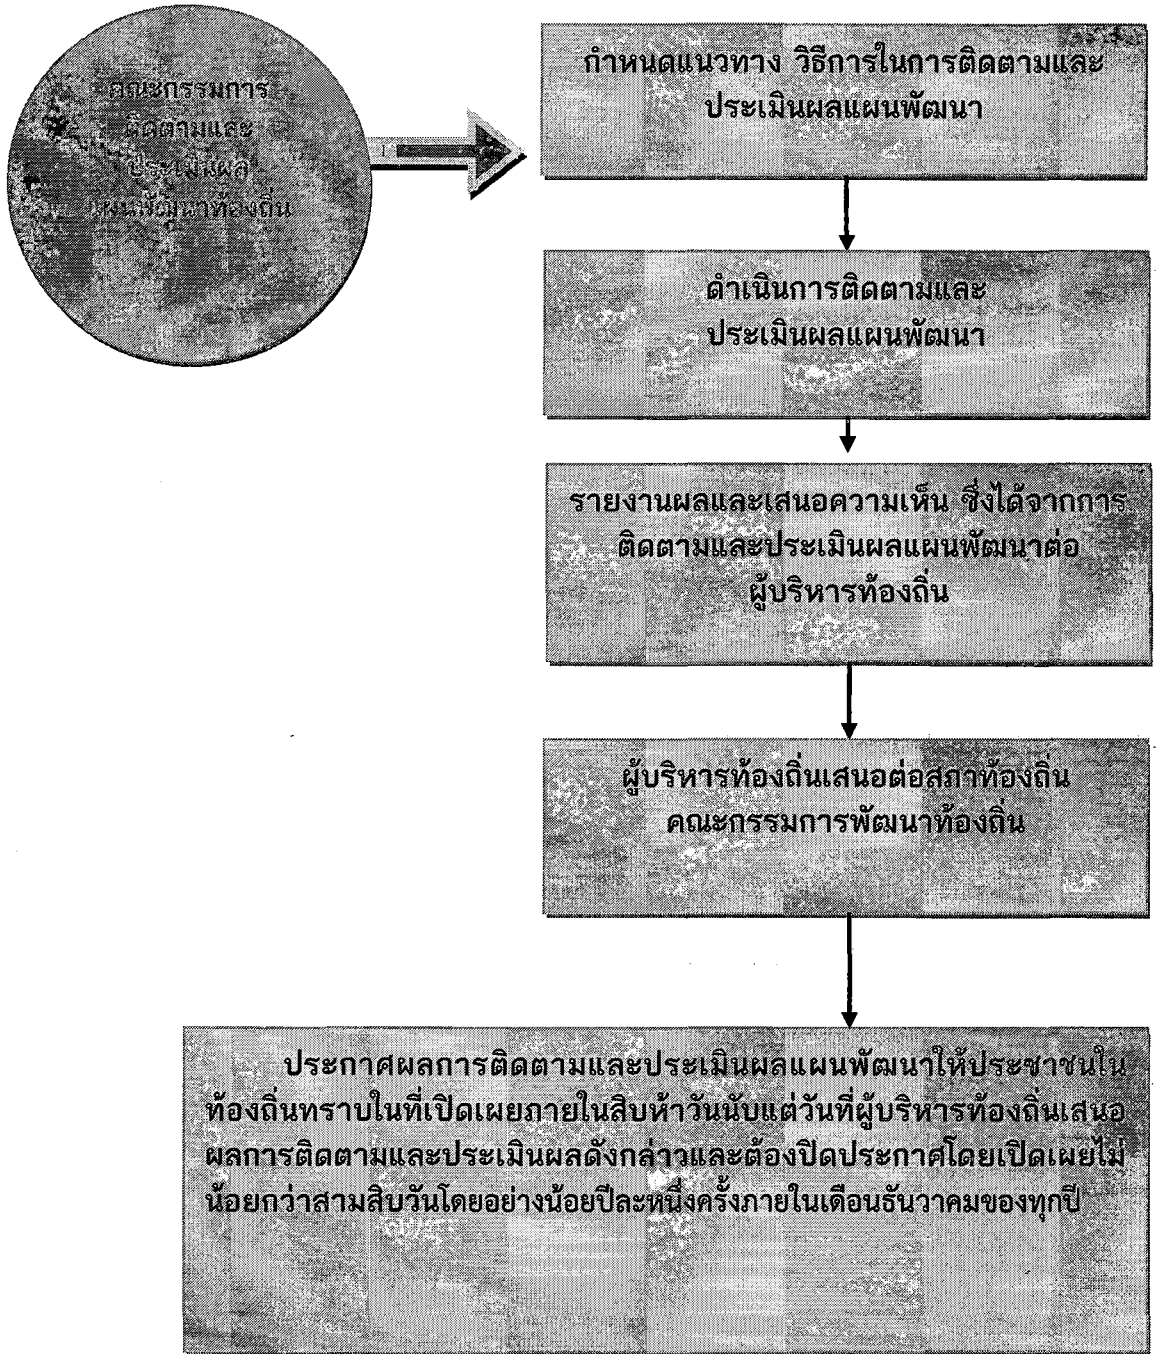 คณะกรรมการ
ติดตามและ
ประเมินผล
แผนพัฒนาท้องถิ่น
กำหนดแนวทาง วิธีการในการติดตามและ
ประเมินผลแผนพัฒนา
ดำเนินการติดตามและ
ประเมินผลแผนพัฒนา
รายงานผลและเสนอความเห็น ซึ่งได้จากการ
ติดตามและประเมินผลแผนพัฒนาต่อ
ผู้บริหารท้องถิ่น
ผู้บริหารท้องถิ่นเสนอต่อสภาท้องถิ่น
คณะกรรมการพัฒนาท้องถิ่น
ประกาศผลการติดตามและประเมินผลแผนพัฒนาให้ประชาชนใน
ท้องถิ่นทราบในที่เปิดเผยภายในสิบห้าวันนับแต่วันที่ผู้บริหารท้องถิ่นเสนอ
ผลการติดตามและประเมินผลดังกล่าวและต้องปิดประกาศโดยเปิดเผยไม่
น้อยกว่าสามสิบวันโดยอย่างน้อยปีละหนึ่งครั้งภายในเดือนธันวาคมของทุกปี